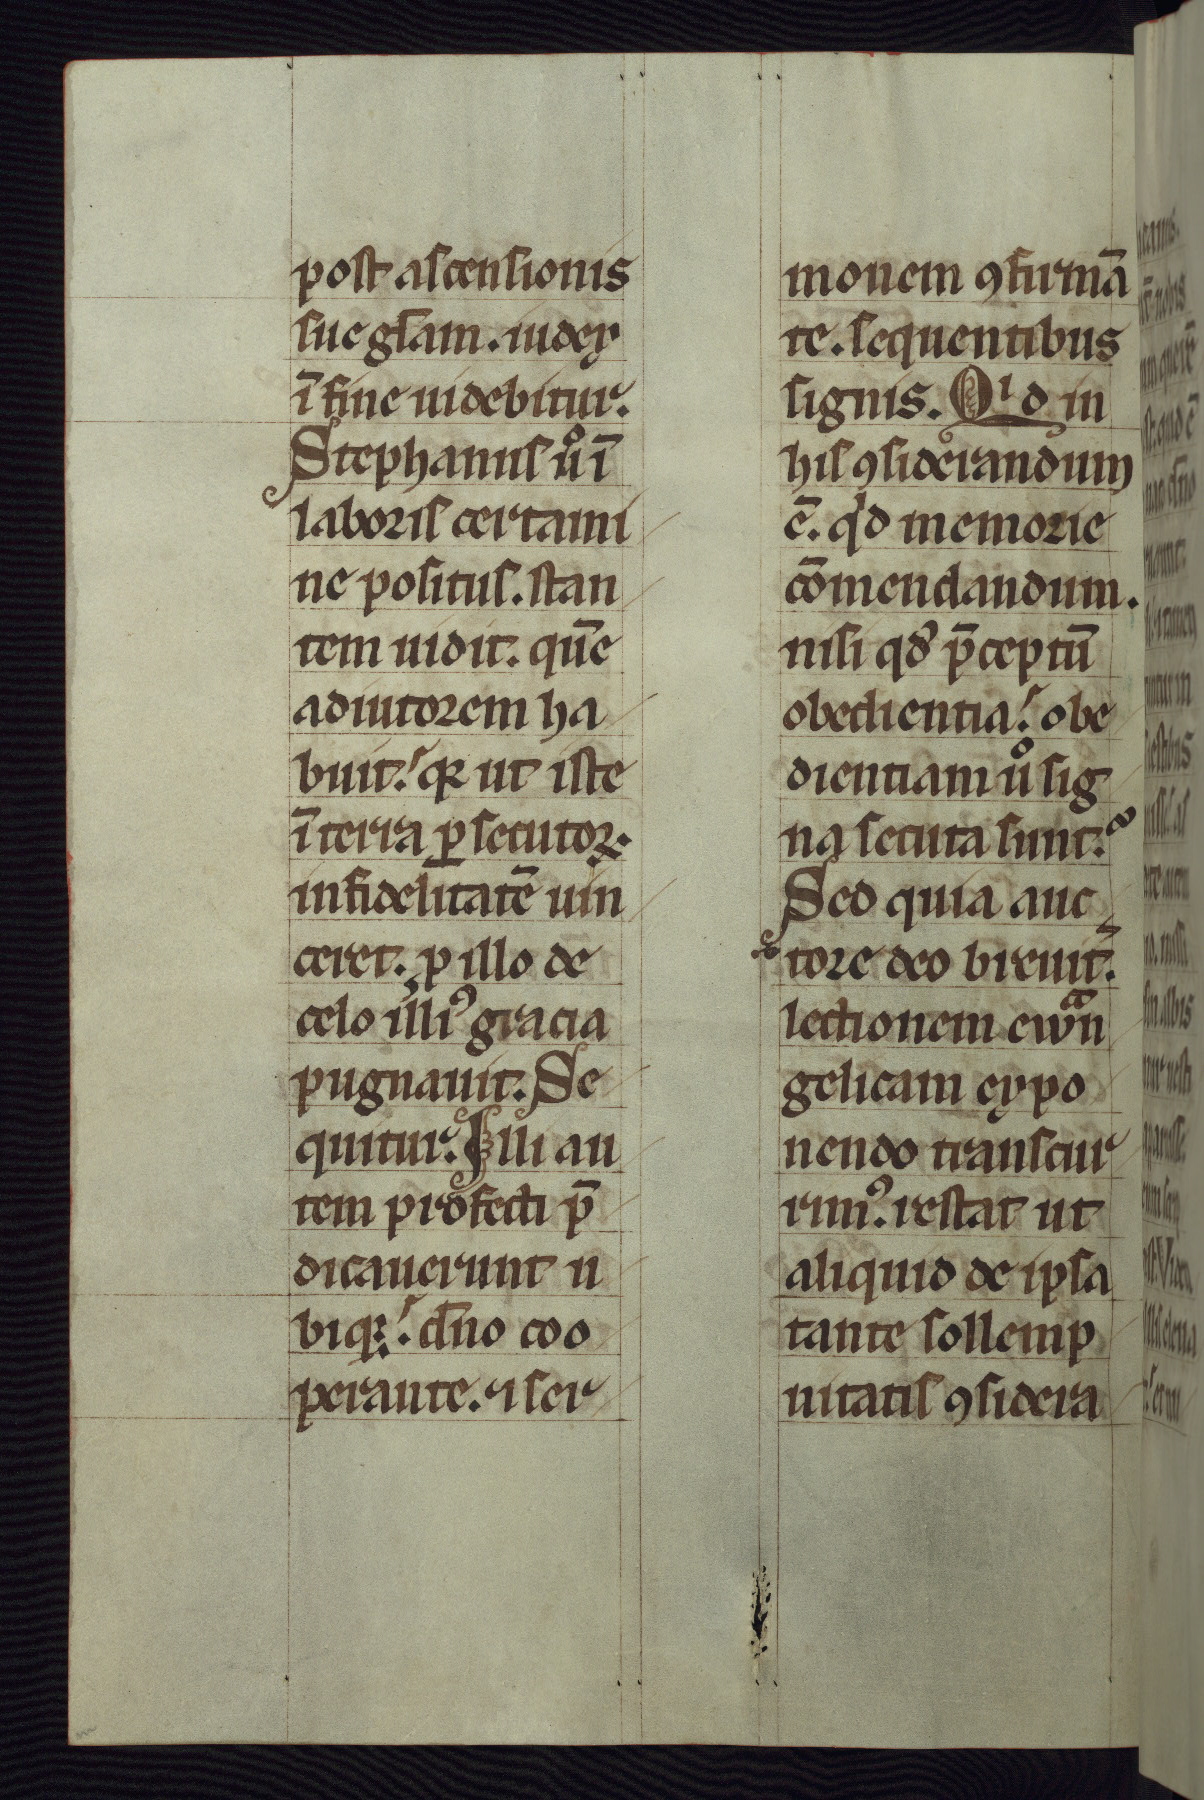 post ascensionis
sue gl̄am. iudex
ī fine uidebitur.
Stephanus uͦ ī
laboris certami
ne positus. stan
tem uidit. quē
adiutorem ha
buit. qꝛ ut iste
ī terra ꝑsecutoꝝ
infidelitatē uin
ceret. ꝓ illo de
celo illiꝰ gracia
pugnauit. Se
quitur. Illi au
tem profecti p̄
dicauerunt u
biqꝫ. dn̄o coo
perante. ⁊ ser
monem ꝯfirmā
te. sequentibus
signis. Qͥd in
his ꝯsiderandum
ē. qͥd memorie
cōmendandum.
nisi qd̓ p̄ceptū
obedientia. obe
dientiam uͦ sig
na secuta sunt.
Sed quia auc
tore deo breuit̓.
lectionem ewͣn
gelicam expo
nendo transcur
rimꝰ. restat ut
aliquid de ipsa
tante sollemp
nitatis ꝯsidera